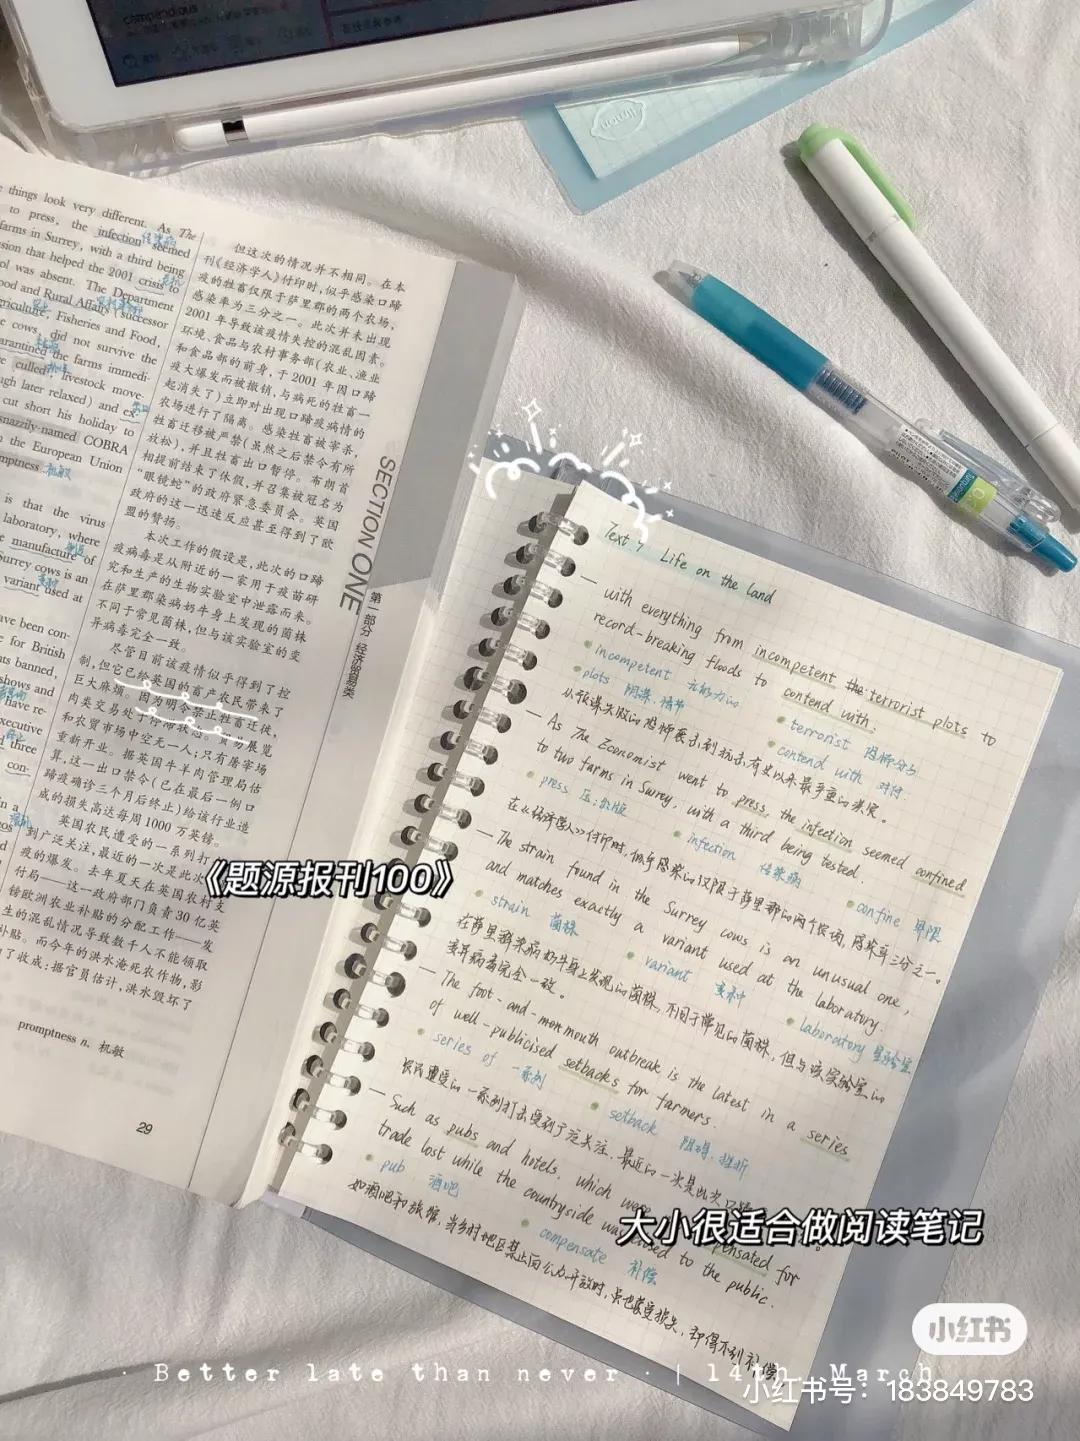 champendious
things look very different. As The
to press, the infection seemed
传染病
farms in Surrey, with a third being
sion that helped the 2001 crisis to
ol was absent. The Department
ood and Rural Affairs (successor
riculture, Fisheries and Food,
e cows, did not survive the
arantined the farms immedi-
e culled livestock move-
ugh later relaxed) and ex-
cut short his holiday to
snazzily-named COBRA
n the European Union
mptness 机敏
is that the virus
laboratory, where
e manufacture of
Surrey cows is an
variant used at
ave been con-
e for British
nts banned,
shows and
have re-
xecutive
three
con-
但这次的情况并不相同。在本
刊《经济学人》付印时,似乎感染口蹄
疫的牲畜仅限于萨里郡的两个农场,
感染率为三分之一。此次并未出现
2001年导致该疫情失控的混乱因素。
环境、食品与农村事务部(农业、渔业
和食品部的前身,于2001年因口蹄
疫大爆发而被撤销,与病死的牲畜一
起消失了)立即对出现口蹄疫病情的
农场进行了隔离。感染牲畜被宰杀,
牲畜迁移被严禁(虽然之后禁令有所
放松),并且牲畜出口暂停。布朗首
相提前结束了休假,并召集被冠名为
“眼镜蛇”的政府紧急委员会。英国
政府的这一迅速反应甚至得到了欧
盟的赞扬。
本次工作的假设是,此次的口蹄
疫病毒是从附近的一家用于疫苗研
究和生产的生物实验室中泄露而来。
在萨里郡染病奶牛身上发现的菌株
不同于常见菌株,但与该实验室的变
异病毒完全一致。
尽管目前该疫情似乎得到了控
制,但它已给英国的畜产农民带来了
巨大麻烦。因为明令禁止牲畜迁徙,
肉类交易处于停滞状态。贸易展览
和农贸市场中空无一人;只有屠宰场
重新开业。据英国牛羊肉管理局估
算,这一出口禁令(已在最后一例口
蹄疫确诊三个月后终止)给该行业造
成的损失高达每周1000万英镑。
英国农民遭受的一系列打
到广泛关注,最近的一次是此次
疫的爆发。去年夏天在英国农村支
付局——这一政府部门负责30亿英
镑欧洲农业补贴的分配工作——发
生的混乱情况导致数千人不能领取
补贴。而今年的洪水淹死农作物,影
了收成;据官员估计,洪水毁坏了
promptness n. 机敏
29
SECTION ONE
第一部分 经济贸易类
Text 4 Life on the land
— with everything from incompetent terrorist plots to
record-breaking floods to contend with;
incompetent 无能力的
terrorist 恐怖分子
plots 阴谋、情节
contend with 对付
从预谋失败的恐怖袭击到抗击有史以来最严重的洪灾。
— As The Economist went to press, the infection seemed confined
to two farms in Surrey, with a third being tested.
press 压;出版
infection 传染病
confine 界限
在《经济学人》付印时,似乎感染的仅限于萨里郡的两个农场,感染率三分之一。
— The strain found in the Surrey cows is an unusual one,
and matches exactly a variant used at the laboratory.
strain 菌株
variant 变种
laboratory 实验室
在萨里郡染病奶牛身上发现的菌株,不同于常见的菌株,但与该实验室的
变异病毒完全一致。
— The foot-and-mouth outbreak is the latest in a series
of well-publicised setbacks for farmers.
series of 一系列
setback 阻碍、挫折
农民遭受的一系列打击受到广泛关注,最近的一次是此次口蹄
— Such as pubs and hotels, which were compensated for
trade lost while the countryside was closed to the public.
pub 酒吧
compensate 补偿
如酒吧和旅馆,当乡村地区禁止向公众开放时,虽也蒙受损失,却得不到补偿
《题源报刊100》
大小很适合做阅读笔记
小红书
· Better late than never · | 14th. March
小红书号:183849783